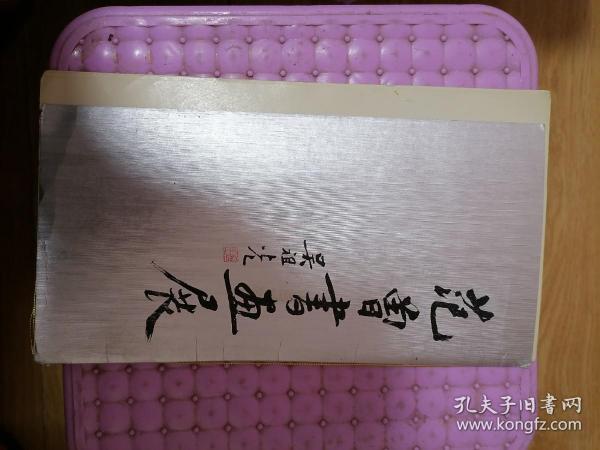 范曾書画展
吴祖光
孔夫子旧书网
www.kongfz.com